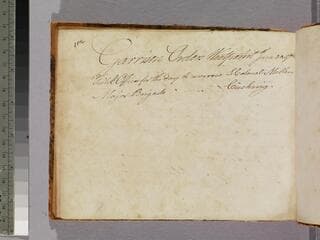 Garrison Orders Westpoint June
Field Officer for the Day to morrow Colonel
Major Brigade Cushing